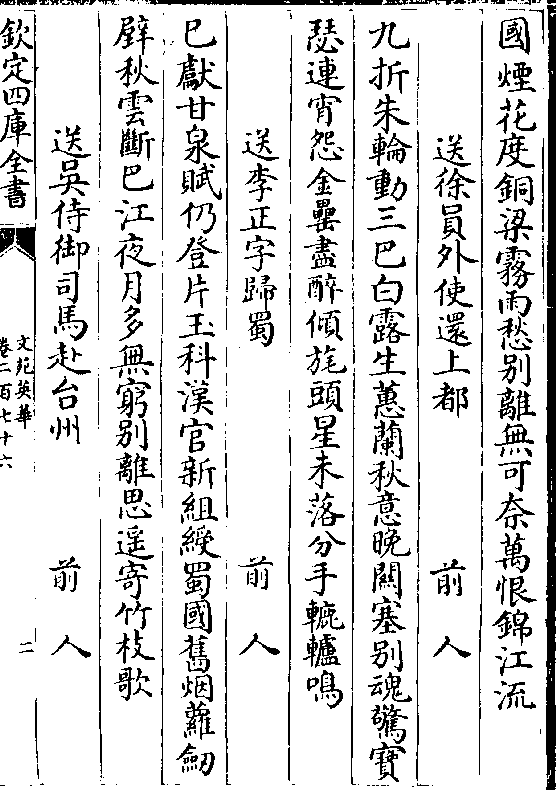 國煙花度銅梁霧雨愁别離無可奈萬恨錦江流
送徐員外使還上都 前人
九折朱輪動三巴白露生蕙蘭秋意晚關塞别魂驚寶
瑟連宵怨金罍盡醉傾旄頭星未落分手轆轤鳴
送李正字歸蜀 前人
已獻甘泉賦仍登片玉科漢官新組綬蜀國舊烟蘿劒
壁秋雲斷巴江夜月多無窮别離思遥寄竹枝歌
送吳侍御司馬赴台州 前人
欽定四庫全書
文苑英華
卷二百七十六
二